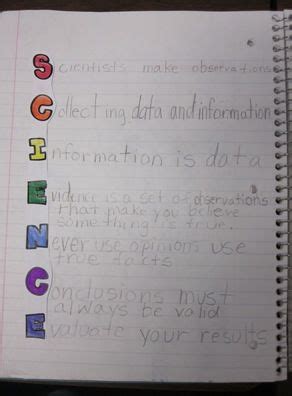 Scientists make observations
Collecting data and information
Information is data
Evidence is a set of observations
that make you believe
something is true.
Never use opinions use
true facts
Conclusions must
always be valid
Evaluate your results